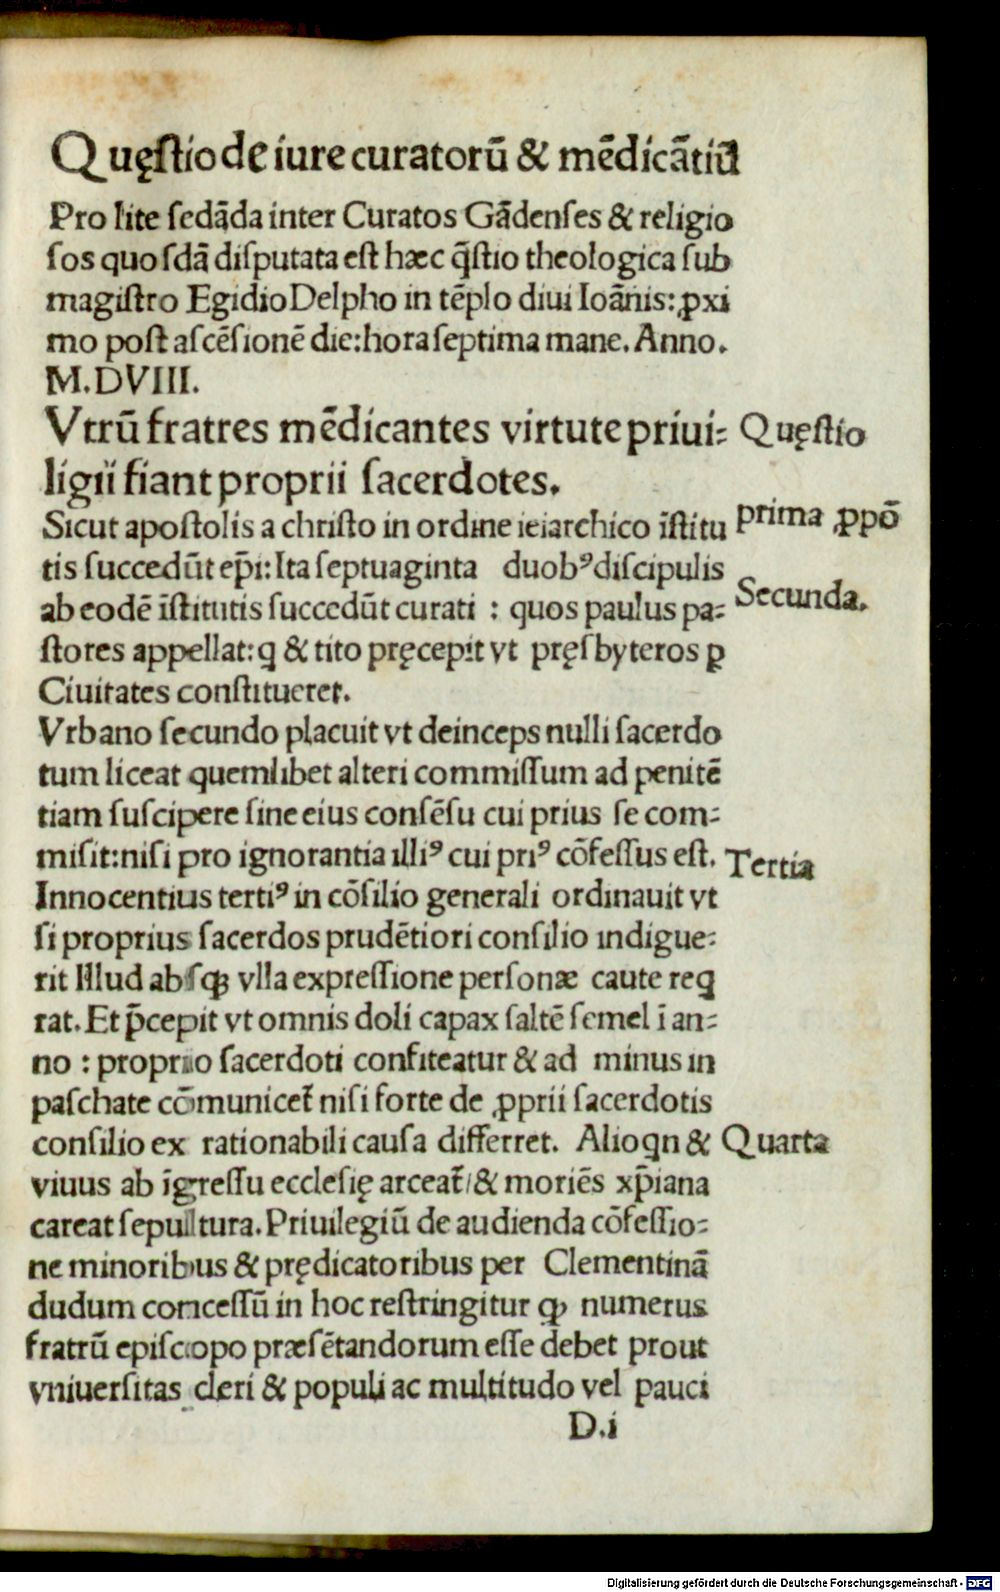 Quęſtio de iure curatorū & mēdicātiū
Pro lite ſedāda inter Curatos Gādenſes & religio
ſos quoſdā diſputata eſt hæc q̄ſtio theologica ſub
magiſtro Egidio Delpho in tēplo diui Ioānis: ꝓxi
mo poſt aſcēſionē die: hora ſeptima mane. Anno.
M.DVIII.
Vtrū fratres mēdicantes virtute priui⸗
ligii fiant proprii ſacerdotes.
Quęſtio
Sicut apoſtolis a chriſto in ordine ieiarchico īſtitu
prima ꝓpō
tis ſuccedūt ep̄i: Ita ſeptuaginta duobꝰ diſcipulis
ab eodē īſtitutis ſuccedūt curati : quos paulus pa⸗
Secunda.
ſtores appellat: q & tito pręcepit vt pręſbyteros ꝑ
Ciuitates conſtitueret.
Vrbano ſecundo placuit vt deinceps nulli ſacerdo
tum liceat quemlibet alteri commiſſum ad penitē
tiam ſuſcipere ſine eius conſēſu cui prius ſe com⸗
miſit: niſi pro ignorantia illiꝰ cui priꝰ cōfeſſus eſt.
Tertia
Innocentius tertiꝰ in cōſilio generali ordinauit vt
ſi proprius ſacerdos prudētiori conſilio indigue⸗
rit Illud abſqꝫ vlla expreſſione perſonæ caute req
rat. Et p̄cepit vt omnis doli capax ſaltē ſemel ī an⸗
no : proprio ſacerdoti confiteatur & ad minus in
paſchate cōmunicet᷑ niſi forte de ꝓprii ſacerdotis
conſilio ex rationabili cauſa differret. Alioqn &
Quarta
viuus ab īgreſſu eccleſię arceat᷑/& moriēs xp̄iana
careat ſepultura. Priuilegiū de audienda cōfeſſio⸗
ne minoribus & prędicatoribus per Clementinā
dudum conceſſū in hoc reſtringitur qꝫ numerus
fratrū epiſcopo præſētandorum eſſe debet prout
vniuerſitas cleri & populi ac multitudo vel pauci
D.i
Digitalisierung gefördert durch die Deutsche Forschungsgemeinschaft - DFG